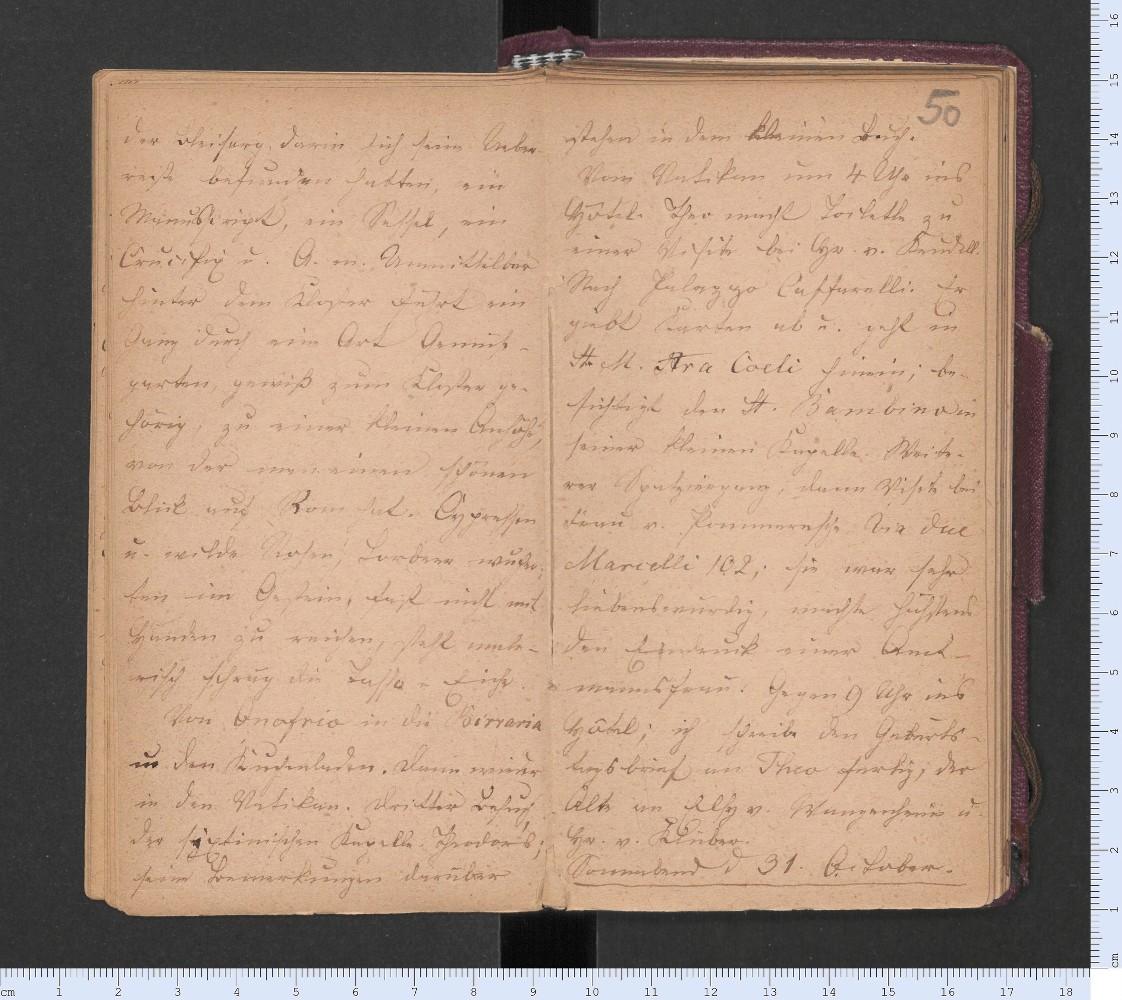 der Bleisarg, darin sich seine Ueber-
reste befunden hatten, ein
Manuscript, ein Sessel, ein
Crucifix u. A. m. Unmittelbar
hinter dem Kloster führt ein
Gang durch eine Art Gemüse-
garten, gewiß zum Kloster ge-
hörig, zu einer kleinen Anhöhe,
von der man einen schönen
Blick auf Rom hat. Cypressen
u. wilde Rosen, Lorbeer wucher-
ten im Gestein, fast nicht mit
Händen zu reichen, steht male-
risch schräg die Tasso-Eiche.
Von Onofrio in die Birraria
u den Kuchenladen. Dann wieder
in den Vatikan. Dritter Besuch
der sixtinischen Kapelle. Theodor's;
seine Bemerkungen darüber
50
stehen in dem kleinen Buch.
Vom Vatikan um 4 Uhr ins
Hôtel. Theo macht Toilette zu
einer Visite bei Hr. v. Keudell.
Nach Palazzo Caffarelli. Er
giebt Karten ab u. geht in
St. M. Ara Coeli hinein; be-
sichtigt den St. Bambino in
seiner kleinen Kapelle. Weite-
rer Spatziergang, dann Visite bei
Frau v. Pommeresche Via due
Marcelli 102; sie war sehr
liebenswürdig, machte höchstens
den Eindruck einer Amt-
mannsfrau. Gegen 9 Uhr ins
Hôtel; ich schreibe den Geburts-
tagsbrief an Theo fertig; der
Alte an Elsy v. Wangenheim u.
Hr. v. Klüber.
Sonnabend d 31. October.